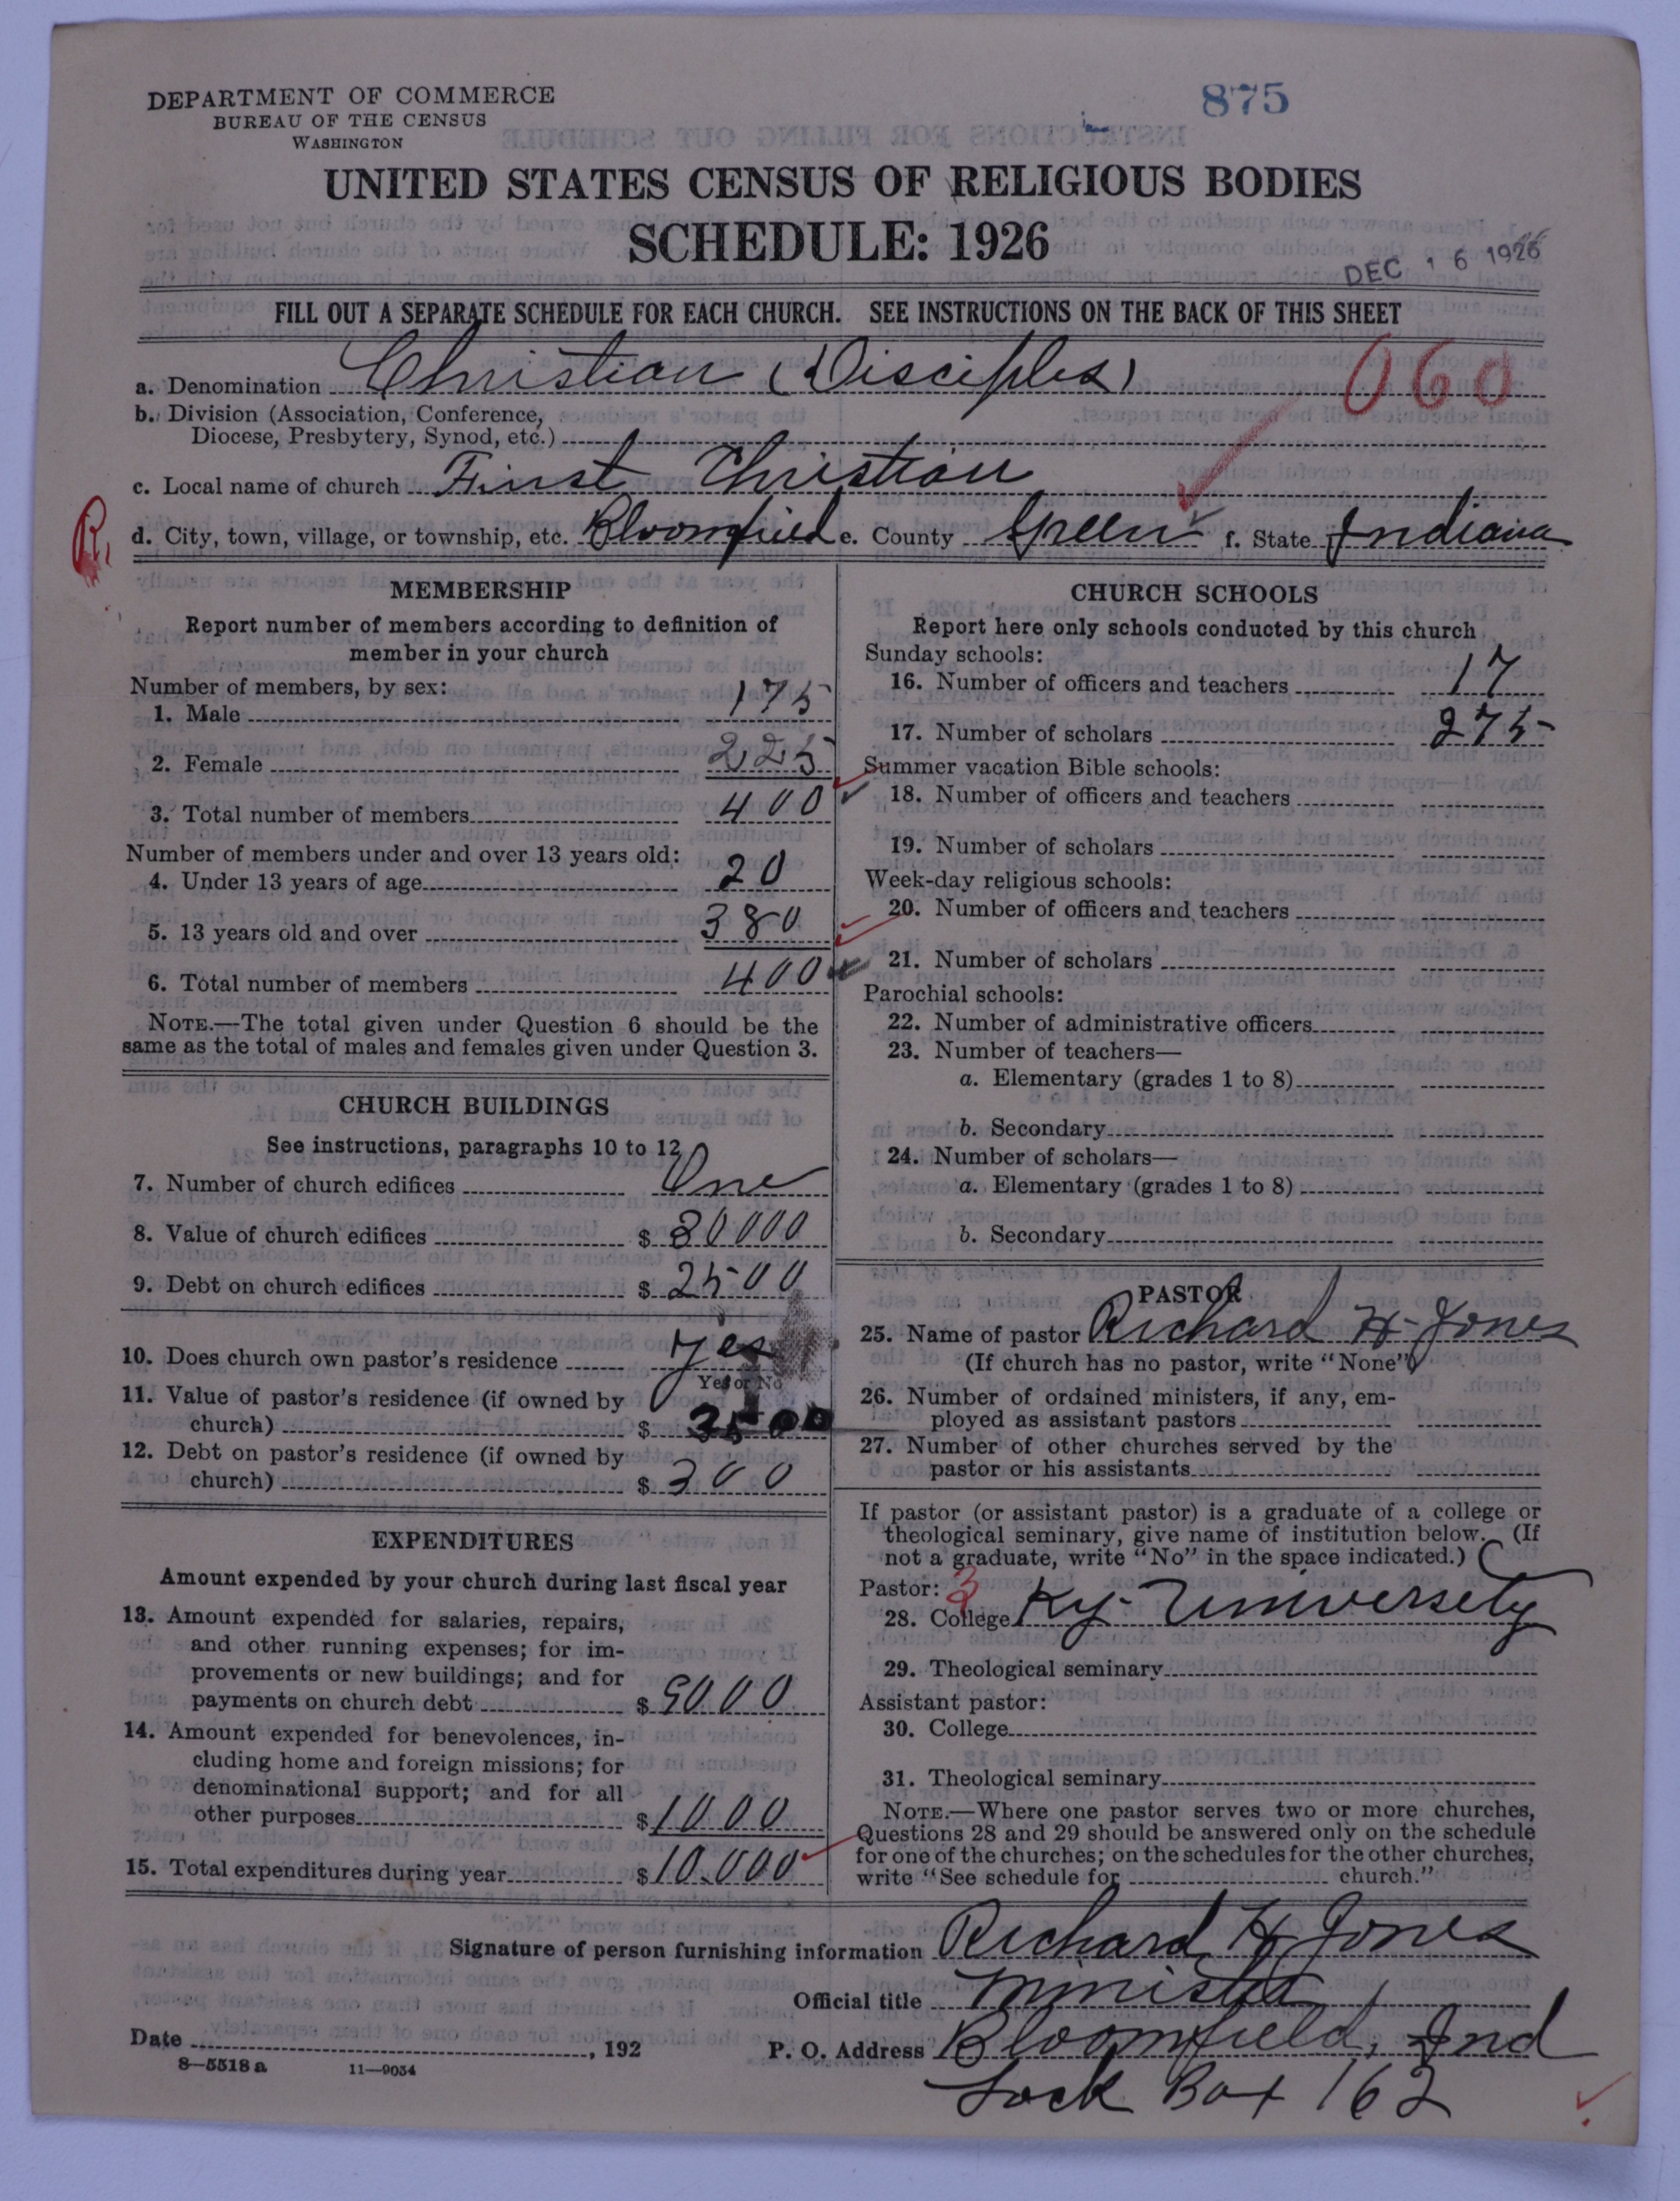 DEPARTMENT OF COMMERCE
BUREAU OF THE CENSUS
WASHINGTON
875
UNITED STATES CENSUS OF RELIGIOUS BODIES
SCHEDULE: 1926
DEC 16 1926
FILL OUT A SEPARATE SCHEDULE FOR EACH CHURCH. SEE INSTRUCTIONS ON THE BACK OF THIS SHEET
a. Denomination Christian (Disciples) 060
b. Division (Association, Conference,
Diocese, Presbytery, Synod, etc.)
c. Local name of church First Christian
R. d. City, town, village, or township, etc. Bloomfield e. County Green f. State Indiana
MEMBERSHIP
Report number of members according to definition of
member in your church
Number of members, by sex:
1. Male 175
2. Female 225
3. Total number of members 400
Number of members under and over 13 years old:
4. Under 13 years of age 20
5. 13 years old and over 380
6. Total number of members 400
NOTE.—The total given under Question 6 should be the
same as the total of males and females given under Question 3.
CHURCH BUILDINGS
See instructions, paragraphs 10 to 12
7. Number of church edifices One
8. Value of church edifices $ 80000
9. Debt on church edifices $ 2500
10. Does church own pastor's residence Yes
Yes or No
11. Value of pastor's residence (if owned by
church) $ 3500
12. Debt on pastor's residence (if owned by
church) $ 300
EXPENDITURES
Amount expended by your church during last fiscal year
13. Amount expended for salaries, repairs,
and other running expenses; for im-
provements or new buildings; and for
payments on church debt $ 9000
14. Amount expended for benevolences, in-
cluding home and foreign missions; for
denominational support; and for all
other purposes $ 1000
15. Total expenditures during year $ 10.000
CHURCH SCHOOLS
Report here only schools conducted by this church
Sunday schools:
16. Number of officers and teachers 17
17. Number of scholars 275
Summer vacation Bible schools:
18. Number of officers and teachers
19. Number of scholars
Week-day religious schools:
20. Number of officers and teachers
21. Number of scholars
Parochial schools:
22. Number of administrative officers
23. Number of teachers—
a. Elementary (grades 1 to 8)
b. Secondary
24. Number of scholars—
a. Elementary (grades 1 to 8)
b. Secondary
PASTOR
25. Name of pastor Richard H. Jones
(If church has no pastor, write "None")
26. Number of ordained ministers, if any, em-
ployed as assistant pastors
27. Number of other churches served by the
pastor or his assistants
If pastor (or assistant pastor) is a graduate of a college or
theological seminary, give name of institution below. (If
not a graduate, write "No" in the space indicated.)
Pastor: 3
28. College Ky. University
29. Theological seminary
Assistant pastor:
30. College
31. Theological seminary
NOTE.—Where one pastor serves two or more churches,
Questions 28 and 29 should be answered only on the schedule
for one of the churches; on the schedules for the other churches,
write "See schedule for church."
Signature of person furnishing information Richard H. Jones
Official title Minister
Date , 192 P. O. Address Bloomfield, Ind
8—5518 a 11—9034
Lock Box 162